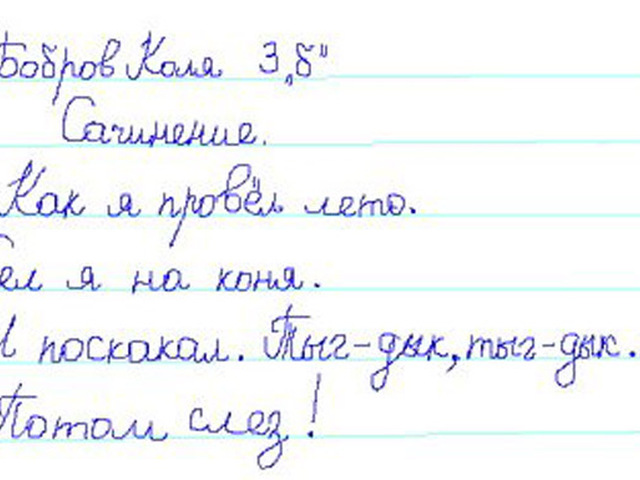 Бобров Коля 3 „Б"
Сочинение.
Как я провёл лето.
Сел я на коня.
И поскакал. Тыг-дык, тыг-дык.
Потом слез!